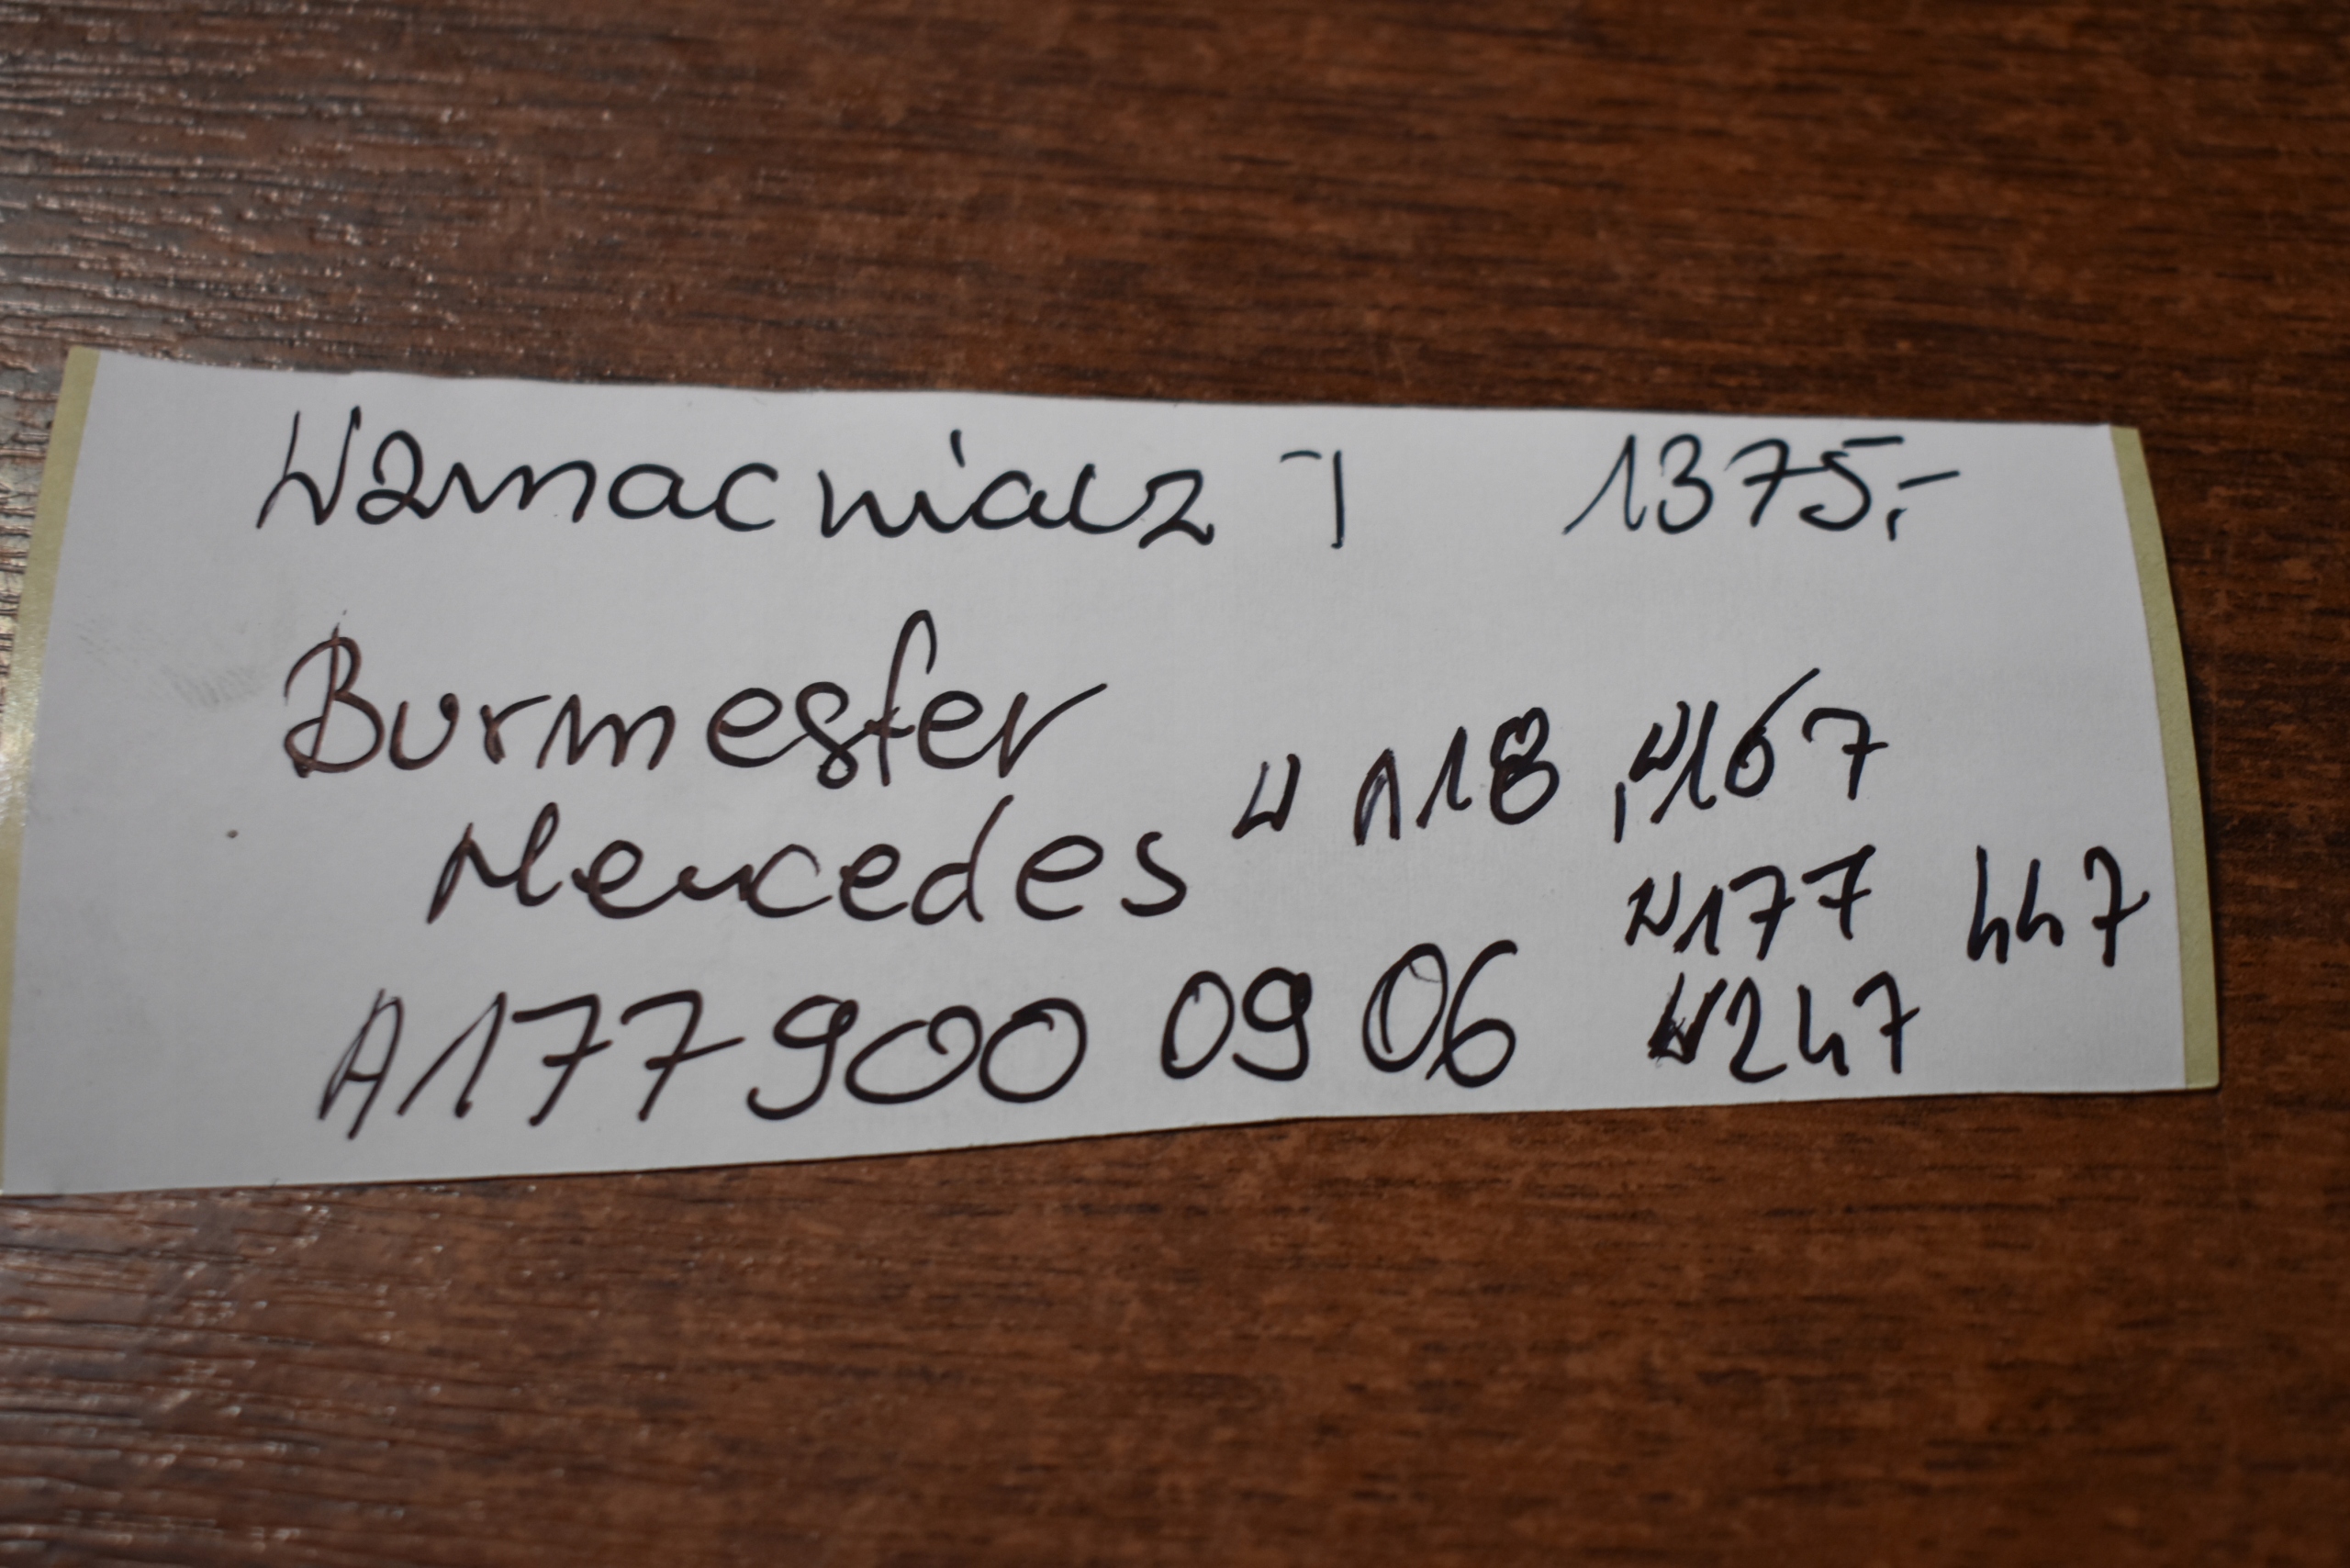 Wzmacniacz 1 1375,-
Burmester
Mercedes W 118, W167
W177 447
A177 900 09 06 W247